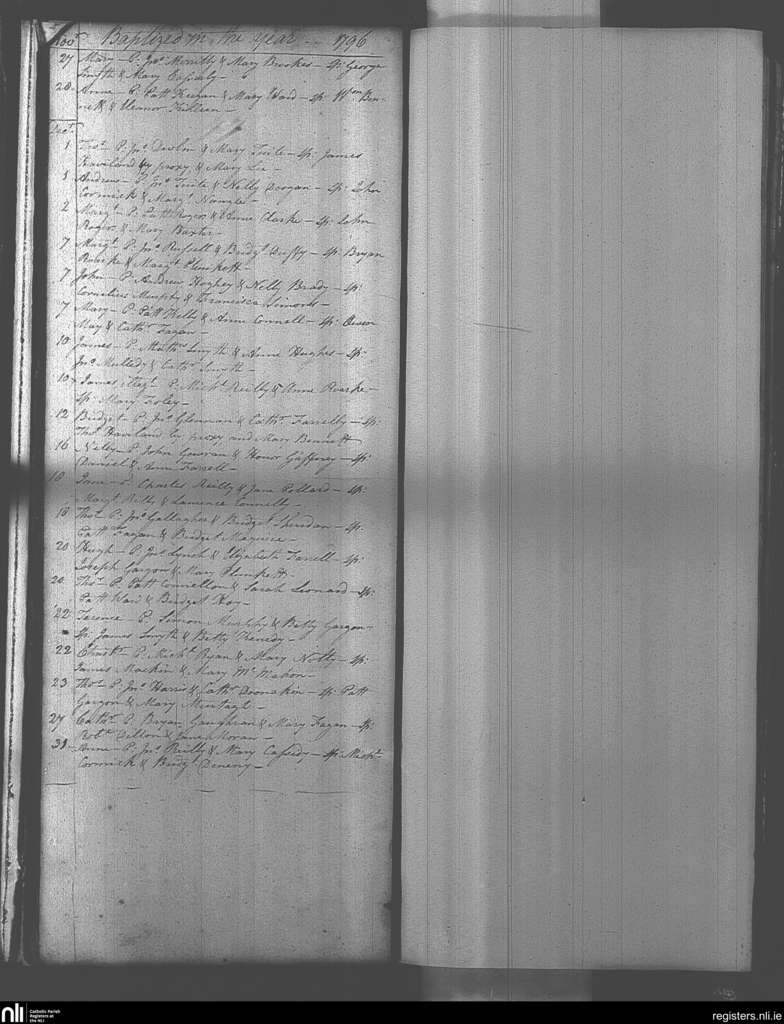 Nov.r Baptized in the Year — 1796
27 Mary — P. Jno. & Mary Brookes — Sp: George
Smyth & Mary
20 Anne — P. Patt Keegan & Mary Ward — Sp: Wm. Ben-
nett & Eleanor Killeen —
Dec.r
1 Thos. P. Jno. Devlin & Mary Tuite — Sp: James
Haviland by proxy & Mary Lee —
1 Andrew — P. Jno. Tuite & Nelly Dorgan — Sp: John
Cormick & Margt.
2 Margt. — P. Patt Rogers & Anne Clarke — Sp: John
Rogers & Mary Baxter —
7 Margt. P. Jno. Russell & Bridgt. Duffy — Sp: Bryan
& Margt. Plunkett —
7 John — P. Andrew Hughey & Nelly Brady — Sp:
Cornelius Murphy & Francisca Simons —
7 Mary — P. Patt Wells & Anne Connell — Sp:
May & Cathn. Fagan —
10 James — P. Matths. Smyth & Anne Hughes — Sp:
Jno. Mulledy & Cathn. Smyth —
10 James P. Michl. Reilly & Anne Roarke —
Sp: Mary Foley —
12 Bridget — P. Jno. Glennan & Cathn. Farrelly — Sp:
Thos. Haviland by proxy and Mary Bennett
16 Nelly — P. John & Honor Gaffney — Sp:
Daniel & Ann Farrell —
16 Jane — P. Charles Reilly & Jane Pollard — Sp:
Margt. Reilly & Laurence Connelly —
18 Thos. P. Jno. Gallagher & Bridget Sheridan — Sp:
Patt Fagan & Bridget Maguire —
20 Hugh — P. Jno. Lynch & Elizabeth Farrell — Sp:
Joseph Gargon & Mary Plunkett —
20 Thos. P. Patt Connellon & Sarah Leonard — Sp:
Patt Ward & Bridget Hoy —
22 Terence — P. Simon Murphy & Betty Gargon —
Sp: James Smyth & Betty Kenedy —
22 P. Michl. Ryan & Mary — Sp:
James Mackin & Mary McMahon —
23 Thos. P. Jno. Harris & Cathn. — Sp: Patt
Gargon & Mary
27 Cathn. P. Bryan Gaughran & Mary Fagan — Sp:
Robt. Dillon & Jane Moran —
31 Anne — P. Jno. Reilly & Mary Cassedy — Sp: Michl.
Cormick & Bridgt.
nli
Catholic Parish
Registers at
the NLI
registers.nli.ie